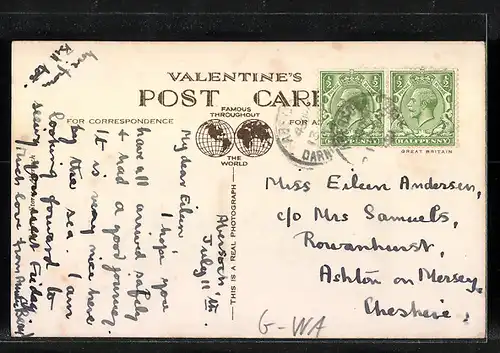 VALENTINE'S
POST CARD
FAMOUS
THROUGHOUT
THE
WORLD
FOR CORRESPONDENCE
FOR AD
THIS IS A REAL PHOTOGRAPH
HALFPENNY
HALFPENNY
GREAT BRITAIN
July 11th.
My dear Eileen
I hope you
have all arrived safely
& had a good journey
It is very nice here
by the sea. I am
looking forward to
seeing you next Friday
Much love from
Miss Eileen Andersen,
c/o Mrs Samuels,
Rowanhurst,
Ashton on Mersey,
Cheshire.
G-WA